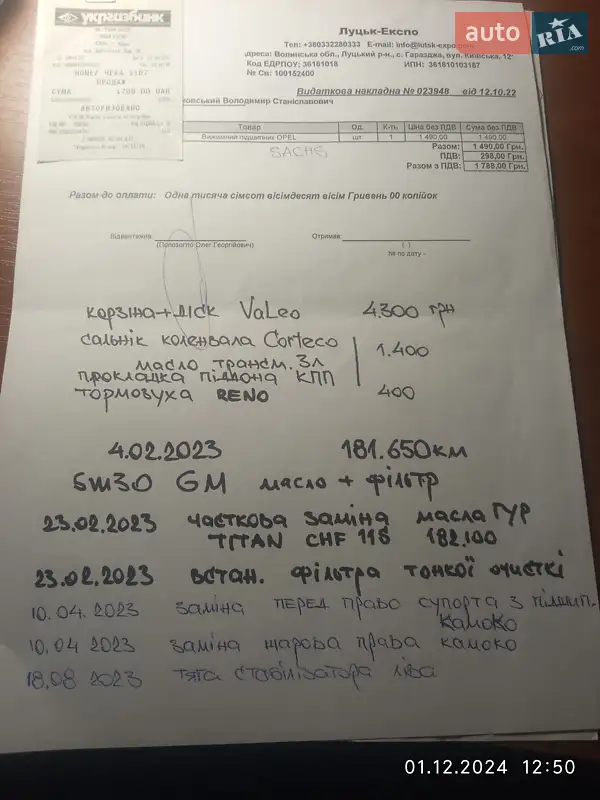 укргазбанк
НОМЕР ЧЕКА 3187
ПРОДАЖ
СУМА 1788 ПО UAH
АВТОРИЗОВАНО
auto RIA .com
Луцьк-Експо
Тел: +380332280333 E-mail: info@lutsk-expo.com
дреса: Волинська обл., Луцький р-н., с. Гаразджа, вул. Київська, 12
Код ЕДРПОУ: 36181018 ІПН: 361810103187
№ Св: 100152400
Видаткова накладна № 023948 від 12.10.22
Володимир Станіславович
Товар Од. К-ть Ціна без ПДВ Сума без ПДВ
Вижимний підшипник OPEL шт 1 1 490,00 1 490,00
Разом: 1 490,00 Грн.
ПДВ: 298,00 Грн.
Разом з ПДВ: 1 788,00 Грн.
SACHS
Разом до оплати: Одна тисяча сімсот вісімдесят вісім Гривень 00 копійок
Відвантажив: Отримав:
( )
№ по дату -
корзіна+діск Valeo 4.300 грн
сальнік коленвала Corteco
1.400
масло трансм. 3л
прокладка піддона КПП
тормозуха RENO 400
4.02.2023 181.650км
5w30 GM масло + фільтр
23.02.2023 часткова заміна масла ГУР
TITAN CHF 11S 182.100
23.02.2023 встан. фільтра тонкої очисткі
10.04.2023 заміна перед. право супорта з підшип.
камоко
10.04 2023 заміна шарова права камоко
18.08 2023 тяга стабілізатора ліва
01.12.2024 12:50